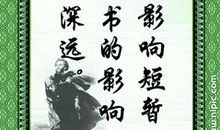 影响短暂
书的影响
深远。
nipic.com